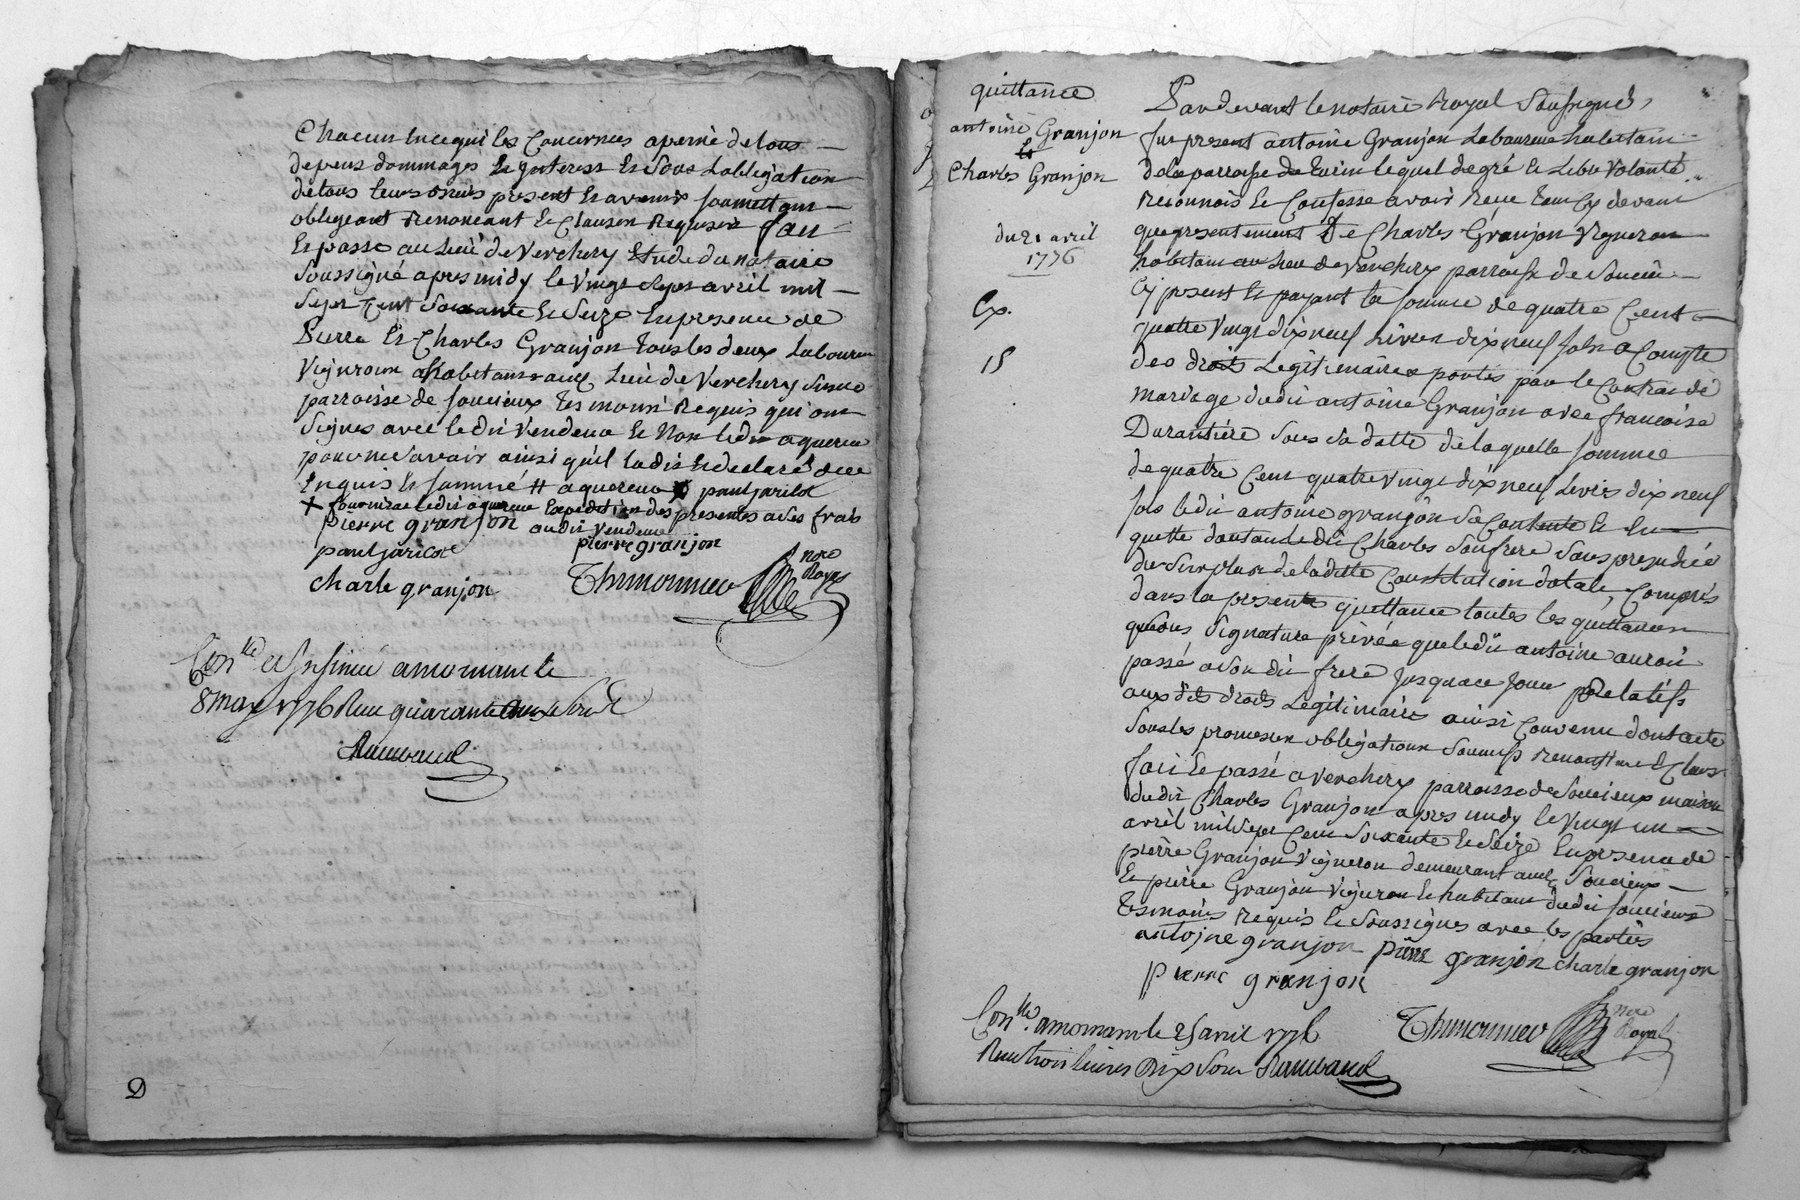 Chacun en ce qui les Concernes apeine de tous
depens dommages & jnterest & sous L'obligation
de tous leurs biens present & avenir soumettant
obligeant Renonceant & Clausen Requisen fait
& passé au Lieu de Verchery Etude du notaire
Soussigné apres midy le vingt Sept avril mil
Sept Cent Soixante & Seize En presence de
Pierre & Charles Granjon tous les deux Laboureur
Vigneron & habitants audt Lieu de Verchery susne
parroisse de soucieux tesmoins Requis qui ont
Signes avec le dit Vendeur & Non le dit aquereur
pour ne savoir ainsi qu'il la dis & declaré de ce
Enquis & sommé # aquereur paul jaricot
+ fournira le dit aquereur Expedition des presentes a ses frais
au dit vendeur
pierre granjon
pierre granjon
paul jaricot
charle granjon
Thimonnier nore Royal
Conlle & Insinué a mornant le
8 may 1776 Reçu quarante
Raimbaud
D
quittance
antoine Granjon
&
Charles Granjon
du 21 avril
1776
Ex.
15
Pardevant le notaire Royal Soussigné
fut present antoine Granjon Laboureur habitant
de la parroisse de lequel de gré & Libre Volonté
Reconnois & Confesse avoir Reçu tant Cy devant
que presentement de Charles Granjon Vigneron
habitant au Lieu de Verchery parroisse de Soucieu
Cy present & payant la somme de quatre Cent
quatre vingt dix neuf Livres dix neuf sols a Compte
des droits Legitimaires portés par le Contrat de
mariage dudit antoine Granjon avec francoise
Durantiere sous sa datte de laquelle somme
de quatre Cent quatre vingt dix neuf Livres dix neuf
sols le dit antoine granjon se Contente & en
quitte d'autant le dit Charles son frere sans prejudice
du Surplus de la ditte Constitution dotale, Compris
dans la presente quittance toutes les quittances
que sous Signature privée que le dit antoine auroit
passé a son dit frere jusqu'a ce jour Relatifs
aux dits droits Legitimaires ainsi Convenu dont acte
sous les promesses obligations soumiss renontiare & Claus
fait & passé a verchery parroisse de Soucieux maison
du dit Charles Granjon apres midy le Vingt un
avril mil sept Cent Soixante & Seize En presence de
pierre Granjon Vigneron demeurant audt Soucieux
& pierre Granjon Vigneron & habitant du dit soucieux
tesmoins Requis & Soussignes avec les parties
antojne granjon pierre granjon charle granjon
pierre granjon
Thimonnier nore Royal
Conlle a mornant le 25 avril 1776
Reçu trois livres dix sous Raimbaud